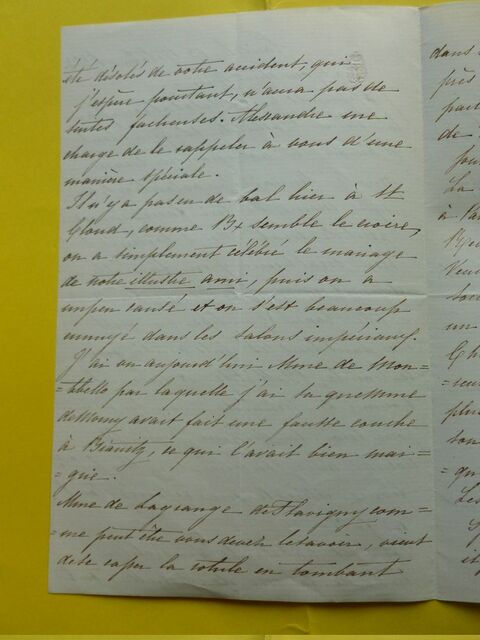 été désolés de votre accident, qui
j'espère pourtant, n'aura pas de
suites facheuses. Alexandre me
charge de le rappeler à vous d'une
manière spéciale.
Il n'y a pas eu de bal hier à St
Cloud, comme Bx semble le croire,
on a simplement célébré le mariage
de notre illustre ami, puis on a
un peu causé et on s'est beaucoup
ennuyé dans les salons impériaux.
J'ai vu aujourd'hui Mme de Mon=
=tebello par laquelle j'ai su que Mme
de Morny avait fait une fausse couche
à Biarritz, ce qui l'avait bien mai=
=grie.
Mme de Lagrange de Flavigny com=
=me peut être vous devez le savoir, vient
de se casser la rotule en tombant
dans
près
par
de
La
à Pa
un
plus
qu
Les